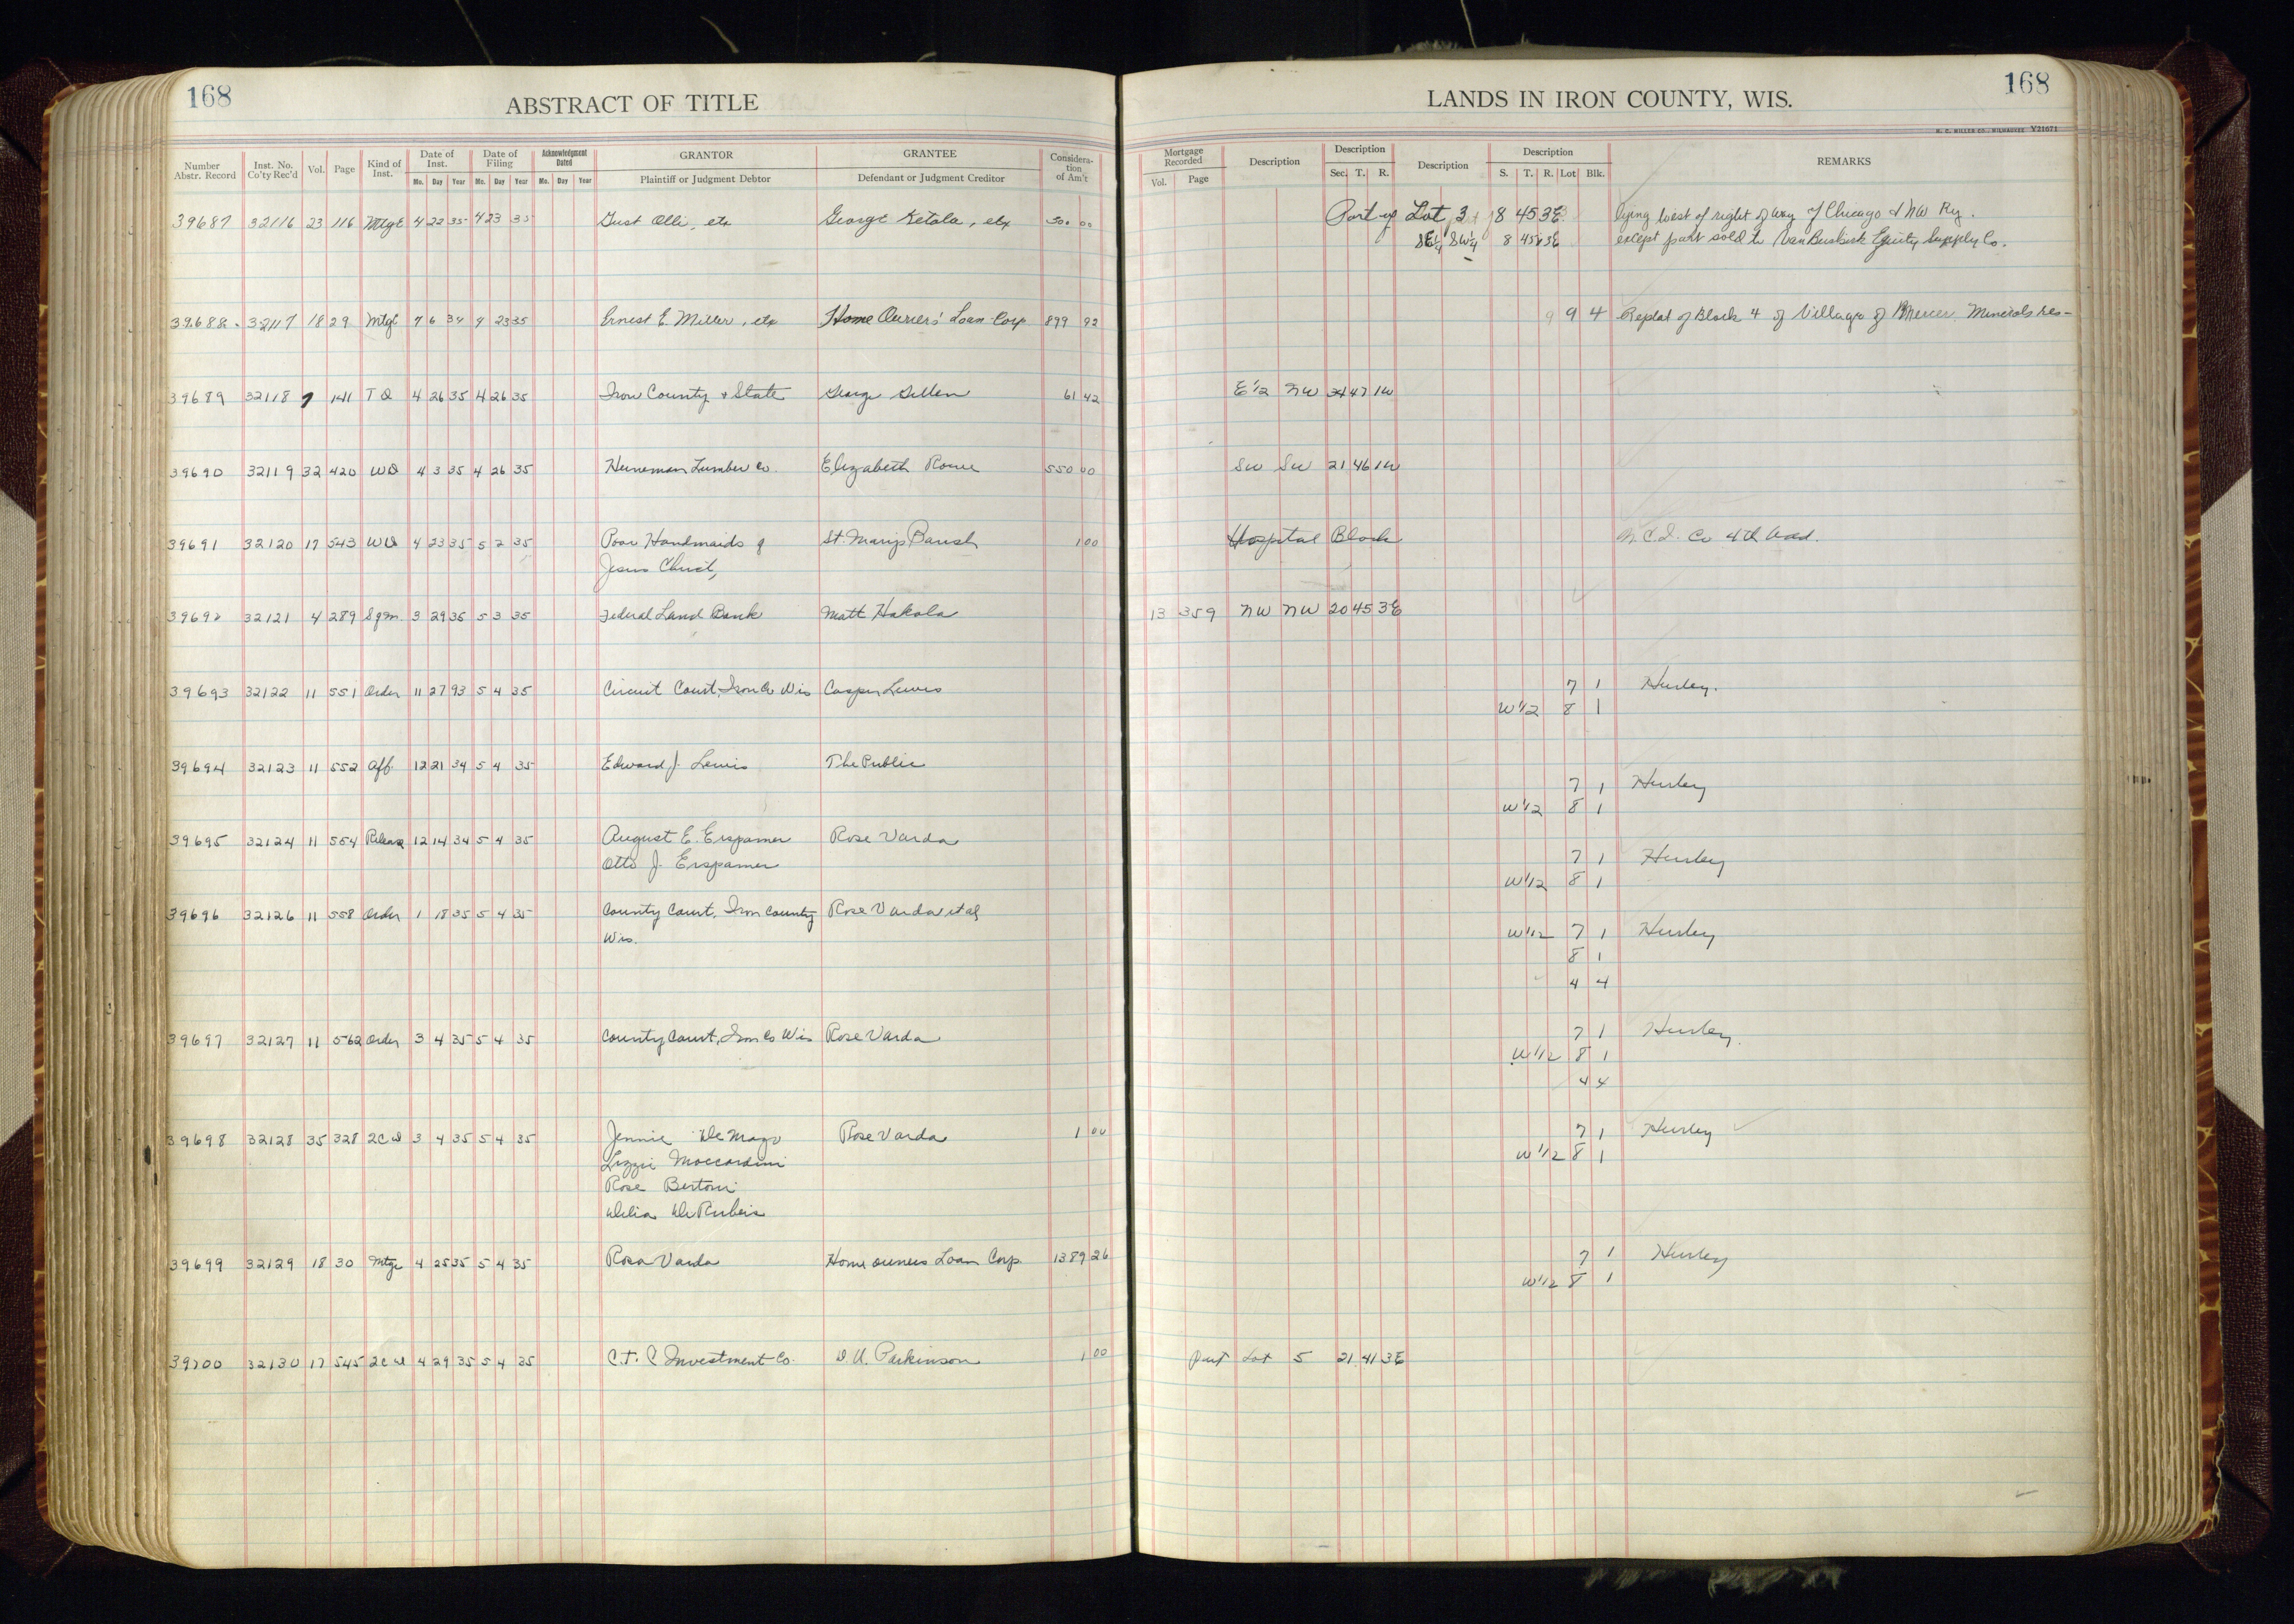 168
ABSTRACT OF TITLE
LANDS IN IRON COUNTY, WIS.
168
H. C. MILLER CO., MILWAUKEE Y21671
Number Abstr. Record
Inst. No. Co'ty Rec'd
Vol.
Page
Kind of Inst.
Date of Inst.
Mo. Day Year
Date of Filing
Mo. Day Year
Acknowledgment Dated
Mo. Day Year
GRANTOR
Plaintiff or Judgment Debtor
GRANTEE
Defendant or Judgment Creditor
Considera-tion of Am't
Mortgage Recorded
Vol. Page
Description
Description
Sec. T. R.
Description
Description
S. T. R. Lot Blk.
REMARKS
39687 32116 23 116 Mtge 4 22 35 4 23 35 Gust Olli, etx George Ketola, etx 500 00 Part of Lot 3 8 45 3E lying West of right of way of Chicago & NW Ry.
SE¼ SW¼ 8 45 3E except part sold to VanBuskirk Equity Supply Co.
39688 32117 18 29 Mtge 7 6 34 4 23 35 Ernest E. Miller, etx Home Owners' Loan Corp 899 92 9 4 Replat of Block 4 of Village of Mercer Minerals Res-
39689 32118 7 141 T D 4 26 35 4 26 35 Iron County & State George Gillen 61 42 E 1/2 NW 34 47 1W
39690 32119 32 420 WD 4 3 35 4 26 35 Heineman Lumber Co. Elizabeth Rowe 550 00 SW SW 21 46 1W
39691 32120 17 543 WD 4 23 35 5 2 35 Poor Handmaids of St. Marys Parish 1 00 Hospital Block N.C.I. Co 4th Add.
Jesus Christ,
39692 32121 4 289 Sgm. 3 29 35 5 3 35 Federal Land Bank Matt Hakala 13 359 NW NW 20 45 3E
39693 32122 11 551 Order 11 27 93 5 4 35 Circuit Court, Iron Co Wis Casper Lewis 7 1 Hurley.
W 1/2 8 1
39694 32123 11 552 Aff. 12 21 34 5 4 35 Edward J. Lewis The Public
7 1 Hurley
W 1/2 8 1
39695 32124 11 554 Release 12 14 34 5 4 35 August E. Erspamer Rose Varda
Otto J. Erspamer 7 1 Hurley
W 1/2 8 1
39696 32126 11 558 Order 1 18 35 5 4 35 County Court, Iron County Rose Varda et al
Wis. W 1/2 7 1 Hurley
8 1
4 4
39697 32127 11 562 Order 3 4 35 5 4 35 County Court, Iron Co Wis Rose Varda 7 1 Hurley.
W 1/2 8 1
4 4
39698 32128 35 328 2C D 3 4 35 5 4 35 Jennie De Mayo Rose Varda 1 00 7 1 Hurley
Lizzie Moccardini W 1/2 8 1
Rose Bertoni
Delia De Rubeis
39699 32129 18 30 Mtge 4 25 35 5 4 35 Rosa Varda Home owners Loan Corp. 1389 26 7 1 Hurley
W 1/2 8 1
39700 32130 17 545 2C D 4 29 35 5 4 35 C. T. C Investment Co. D U. Parkinson 1 00 Part Lot 5 21 41 3E